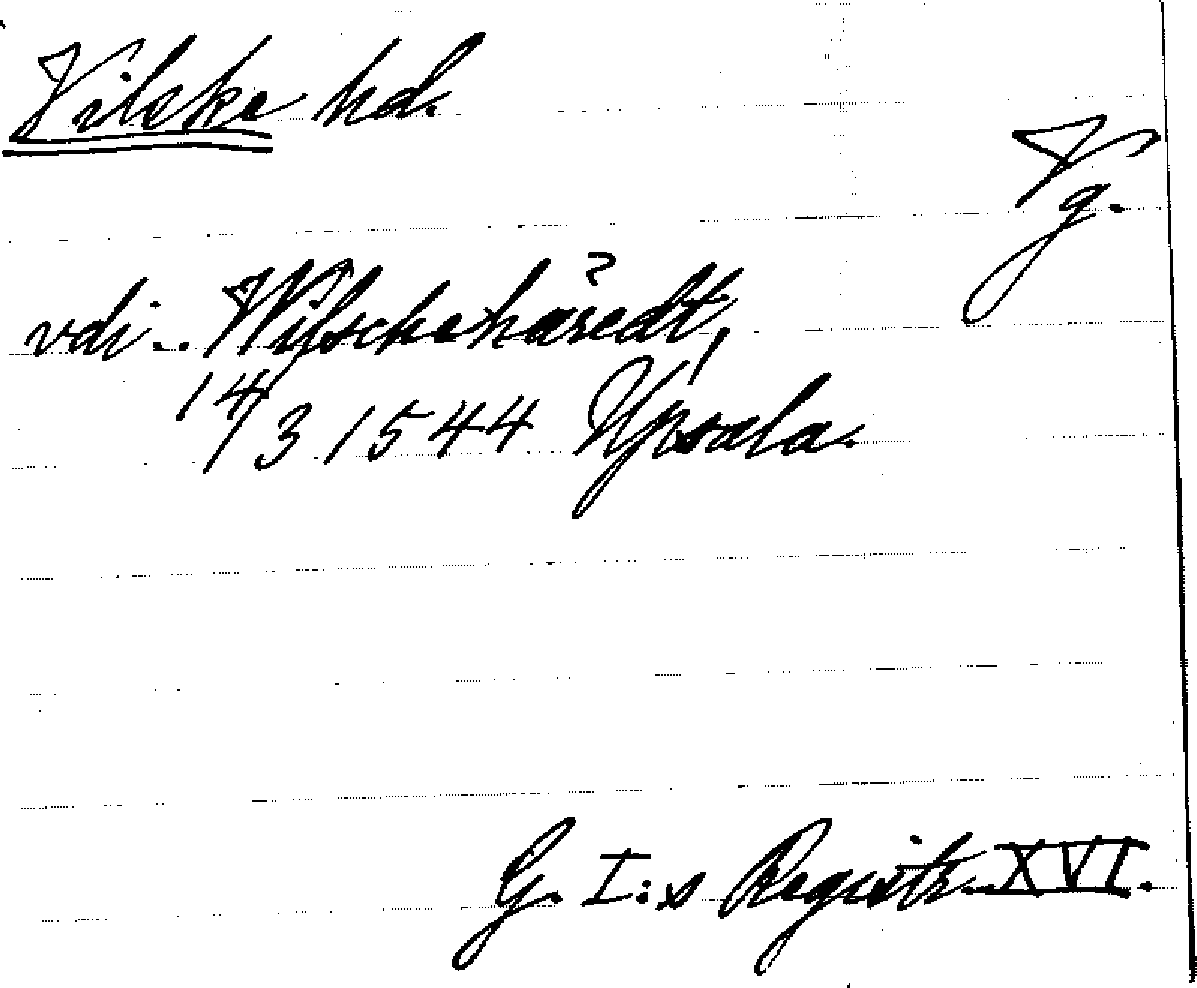 Vilske hd.
Vg.
vdi.. Wilschehäredt,
14/3 1544 Upsala.
G. I:s Registr. XVI.